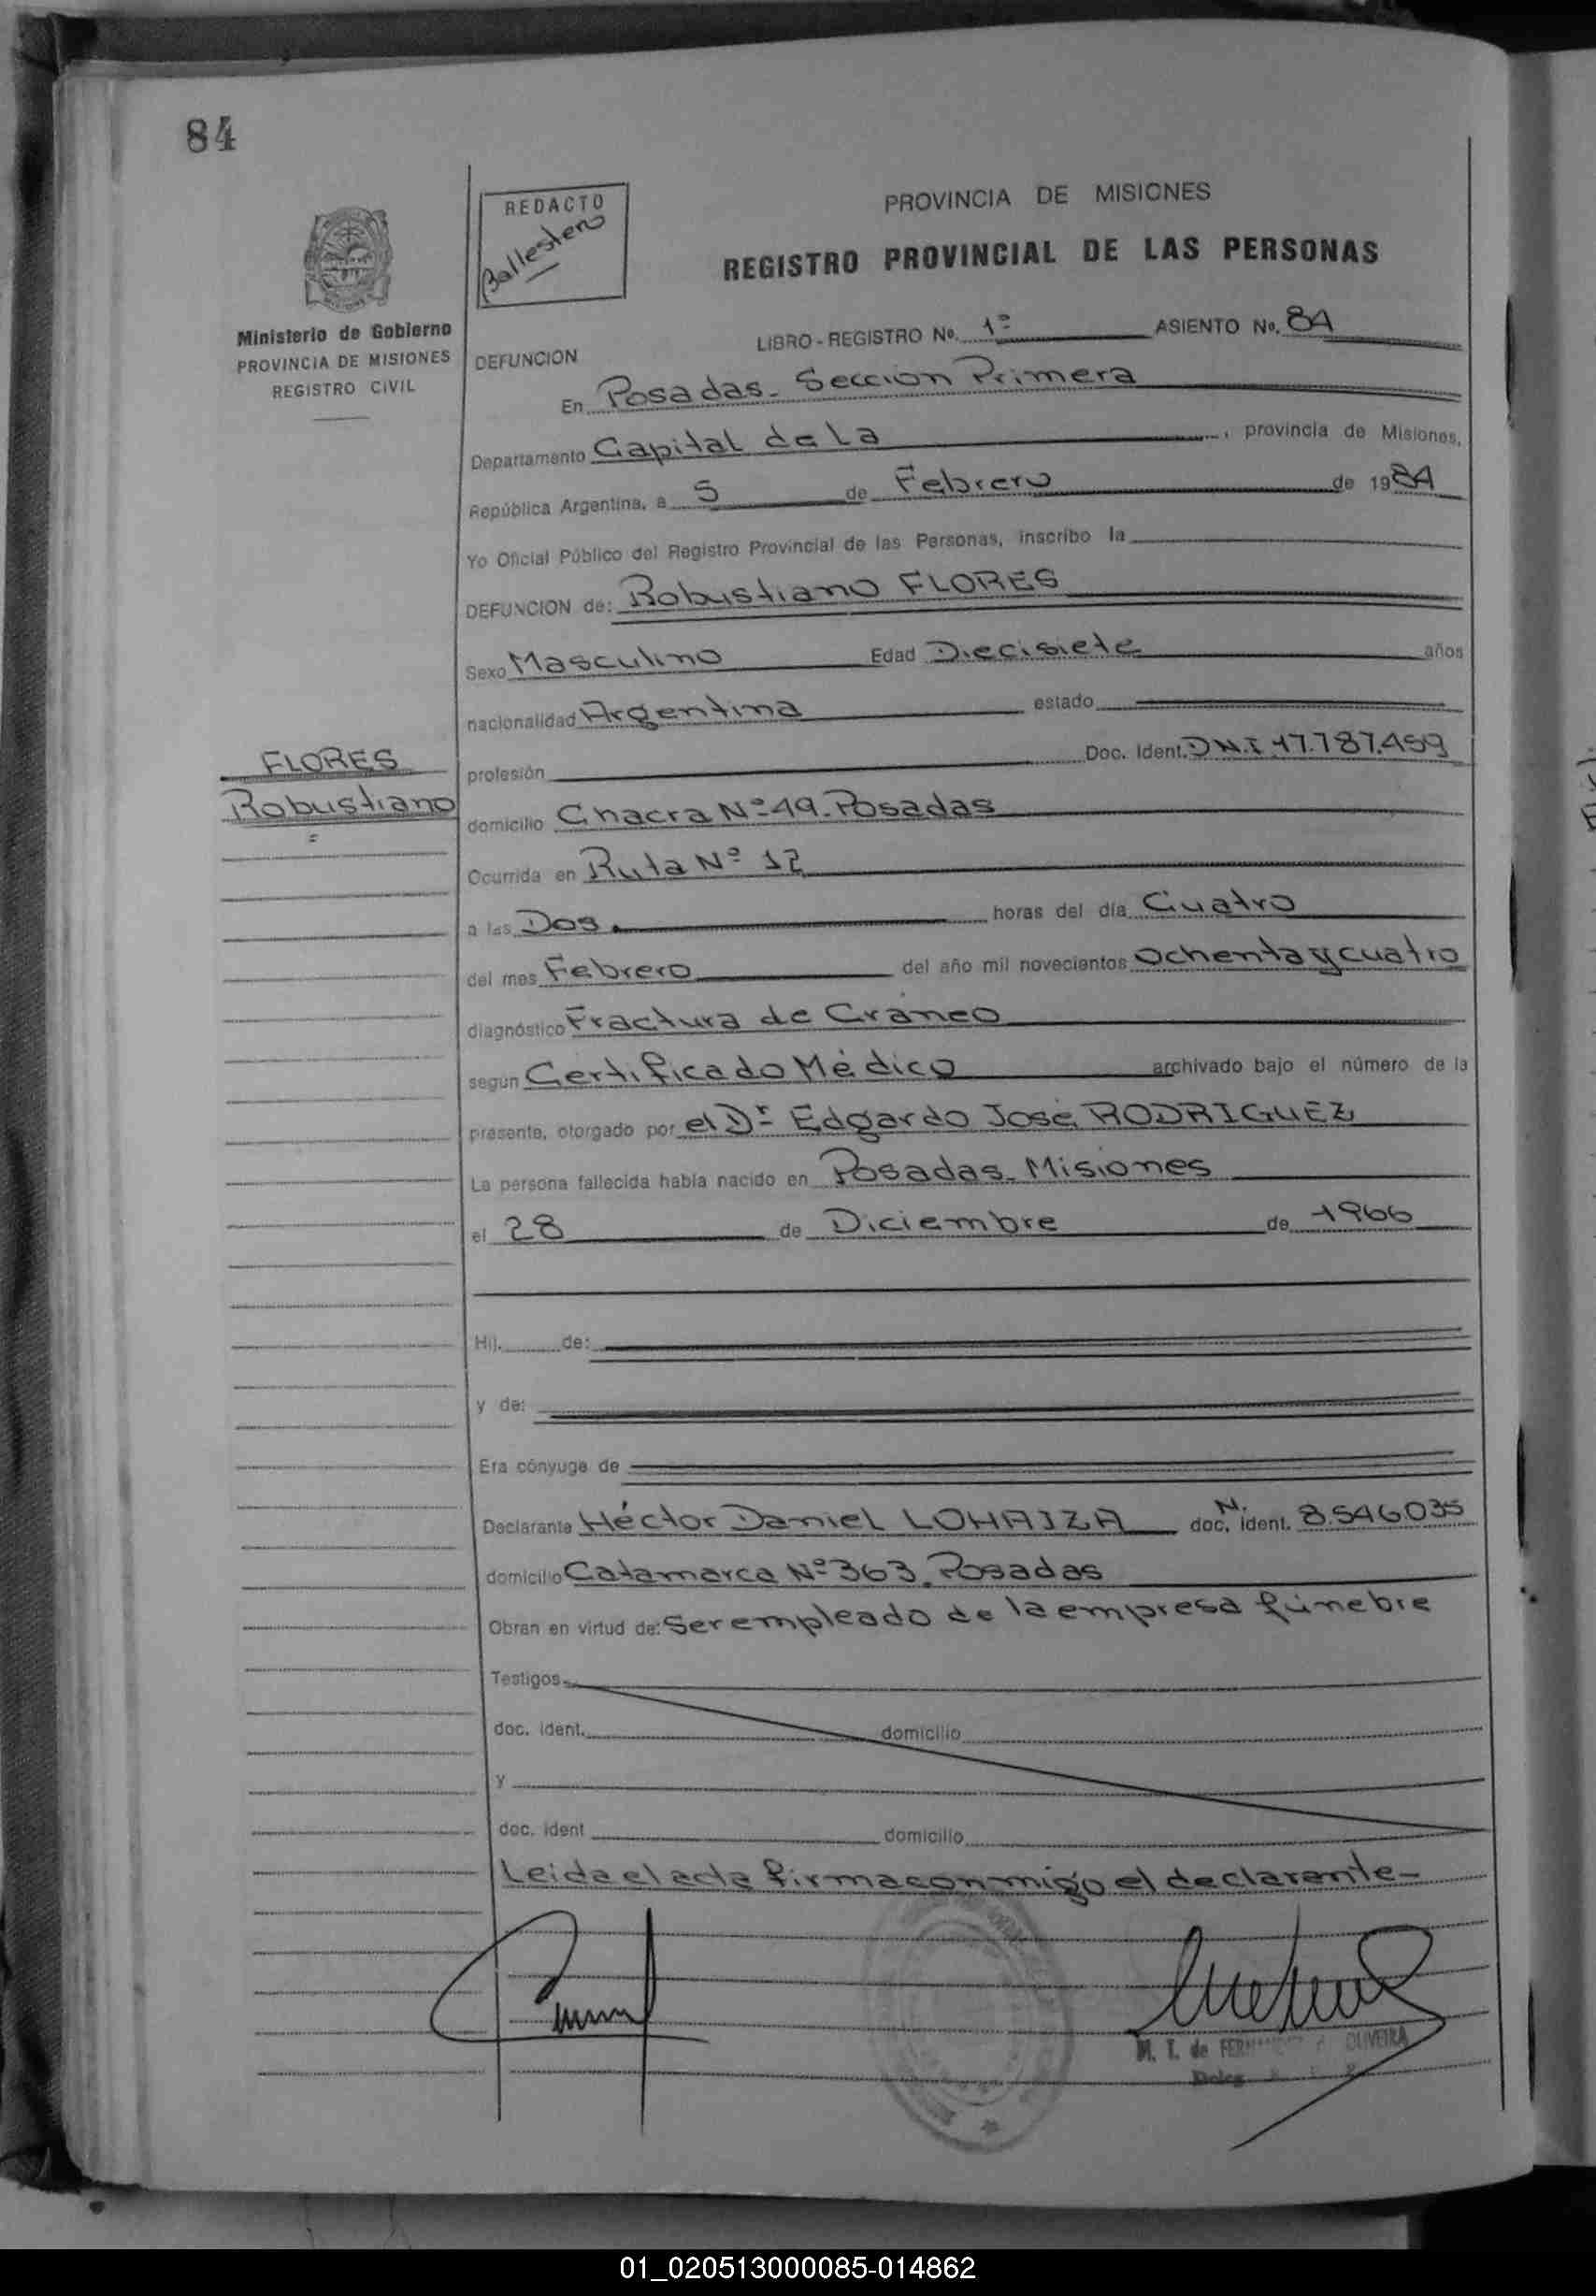 84
REDACTO
Ballestero
PROVINCIA DE MISIONES
REGISTRO PROVINCIAL DE LAS PERSONAS
Ministerio de Gobierno
PROVINCIA DE MISIONES
REGISTRO CIVIL
LIBRO - REGISTRO No. 1º ASIENTO No. 84
DEFUNCION
En Posadas - Sección Primera
Departamento Capital de La, provincia de Misiones,
República Argentina, a 5 de Febrero de 1984
Yo Oficial Público del Registro Provincial de las Personas, inscribo la
DEFUNCION de: Robustiano FLORES
Sexo Masculino Edad Diecisiete años
nacionalidad Argentina estado
FLORES
Robustiano
profesión Doc. Ident. D.N.I 17.787.459
domicilio Chacra Nº 49 - Posadas
Ocurrida en Ruta Nº 12
a las Dos horas del día Cuatro
del mes Febrero del año mil novecientos Ochenta y cuatro
diagnóstico Fractura de Cráneo
según Certificado Médico archivado bajo el número de la
presente, otorgado por el Dr. Edgardo José RODRIGUEZ
La persona fallecida había nacido en Posadas - Misiones
el 28 de Diciembre de 1966
Hij. de:
y de:
Era cónyuge de
Declarante Héctor Daniel LOHAIZA doc. N. ident. 8.546.035
domicilio Catamarca Nº 363. Posadas
Obran en virtud de: Ser empleado de la empresa fúnebre
Testigos
doc. ident. domicilio
y
doc. ident domicilio
Leida el acta firma conmigo el declarante -
M. T. de OLIVEIRA
01_020513000085-014862